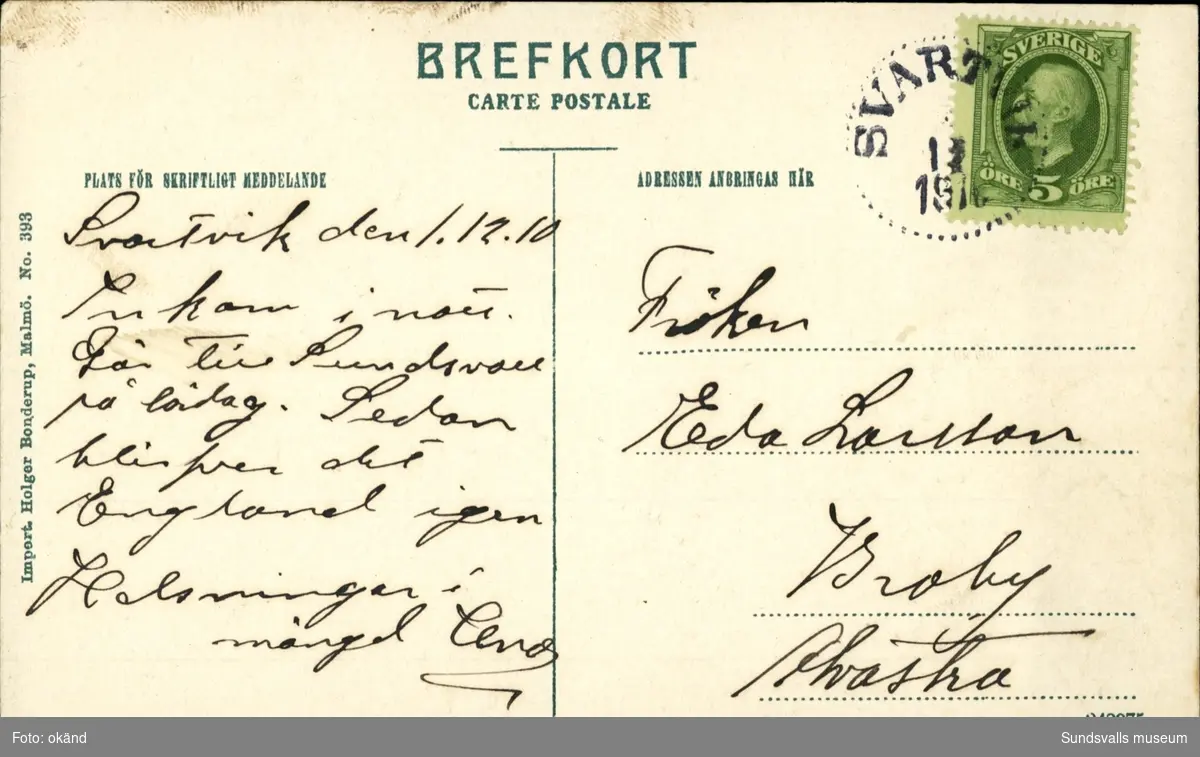 BREFKORT
CARTE POSTALE
SVARTVIK
1910
SVERIGE
ÖRE 5 ÖRE
PLATS FÖR SKRIFTLIGT MEDDELANDE
ADRESSEN ANBRINGAS HÄR
Import. Holger Bonderup, Malmö. No. 393
Svartvik den 1.12.10
kom i natt.
Går till Sundsvall
på lördag. Sedan
blifver det
England igen
Helsningar i
mängd
Fröken
Eda Larsson
Broby
Alvastra
Foto: okänd
Sundsvalls museum